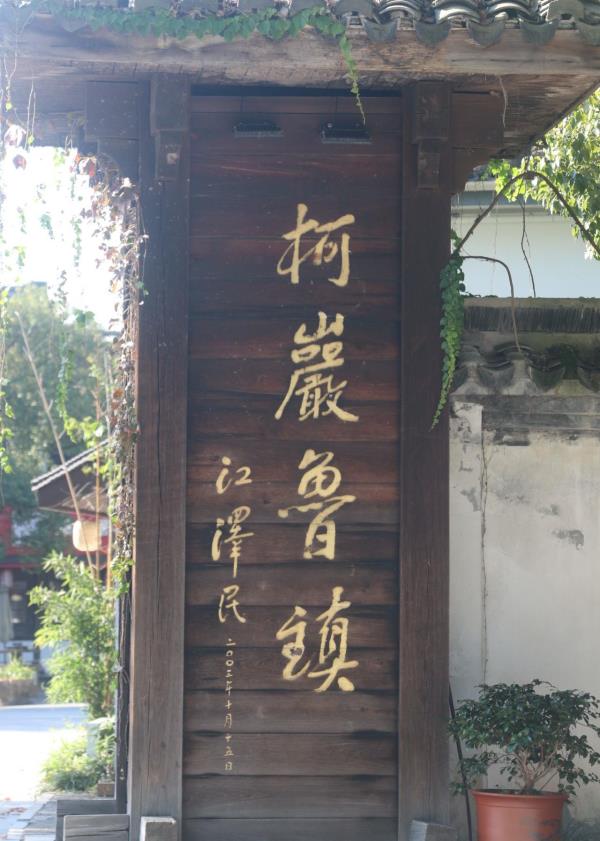 柯巖魯鎮
江澤民
二〇〇三年十月十五日